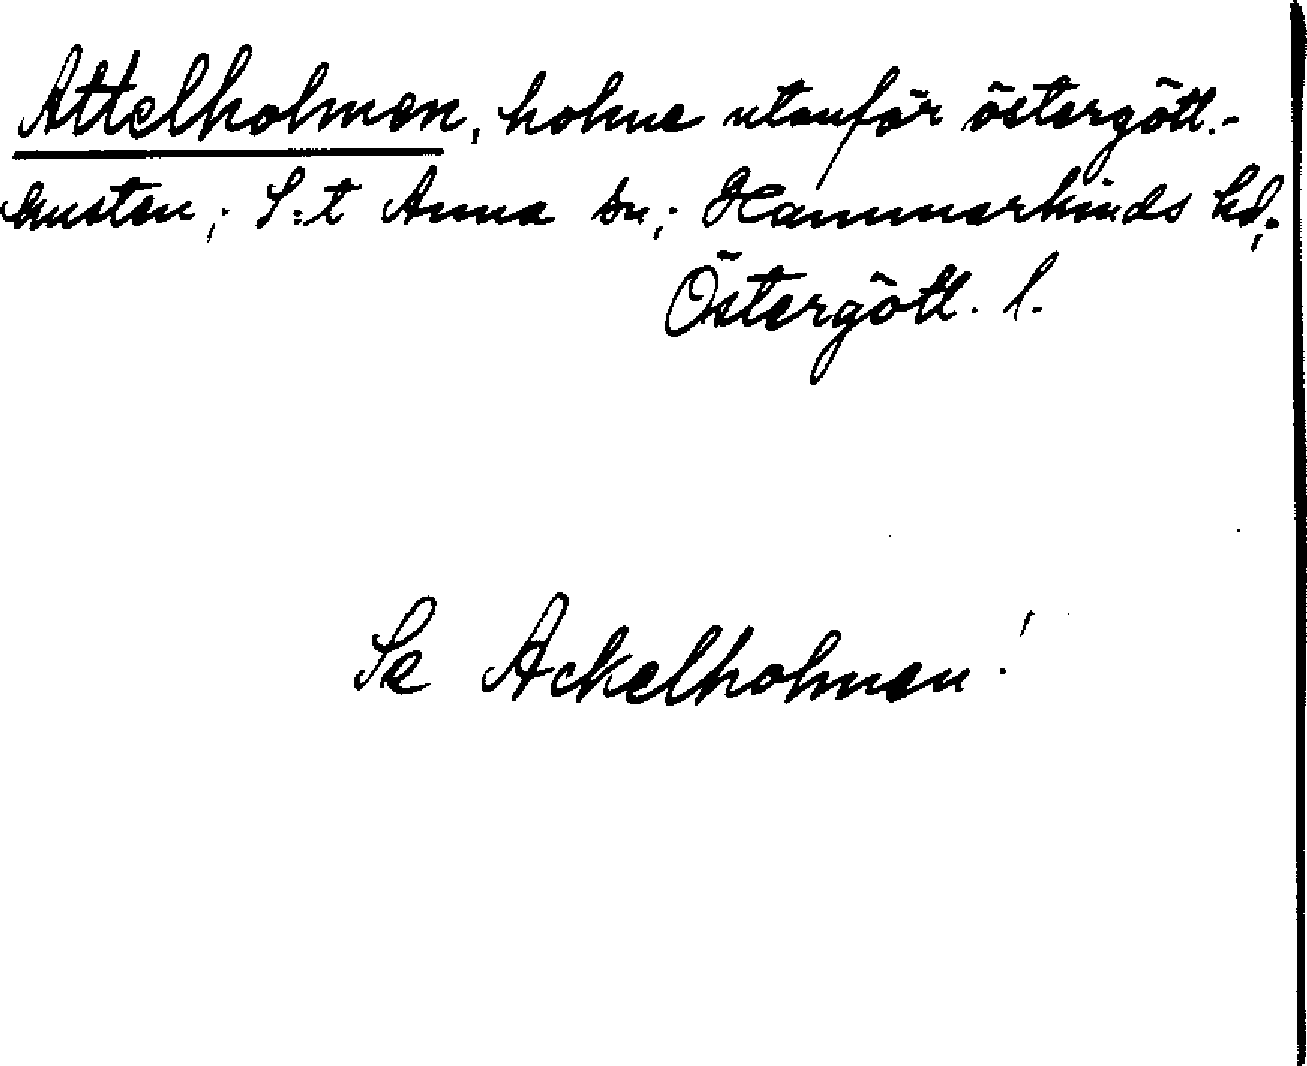 Attelholmen, holme utanför östergötl.-
kusten; S:t Anna sn; Hammarkinds hd;
Östergötl. l.
Se Ackelholmen!